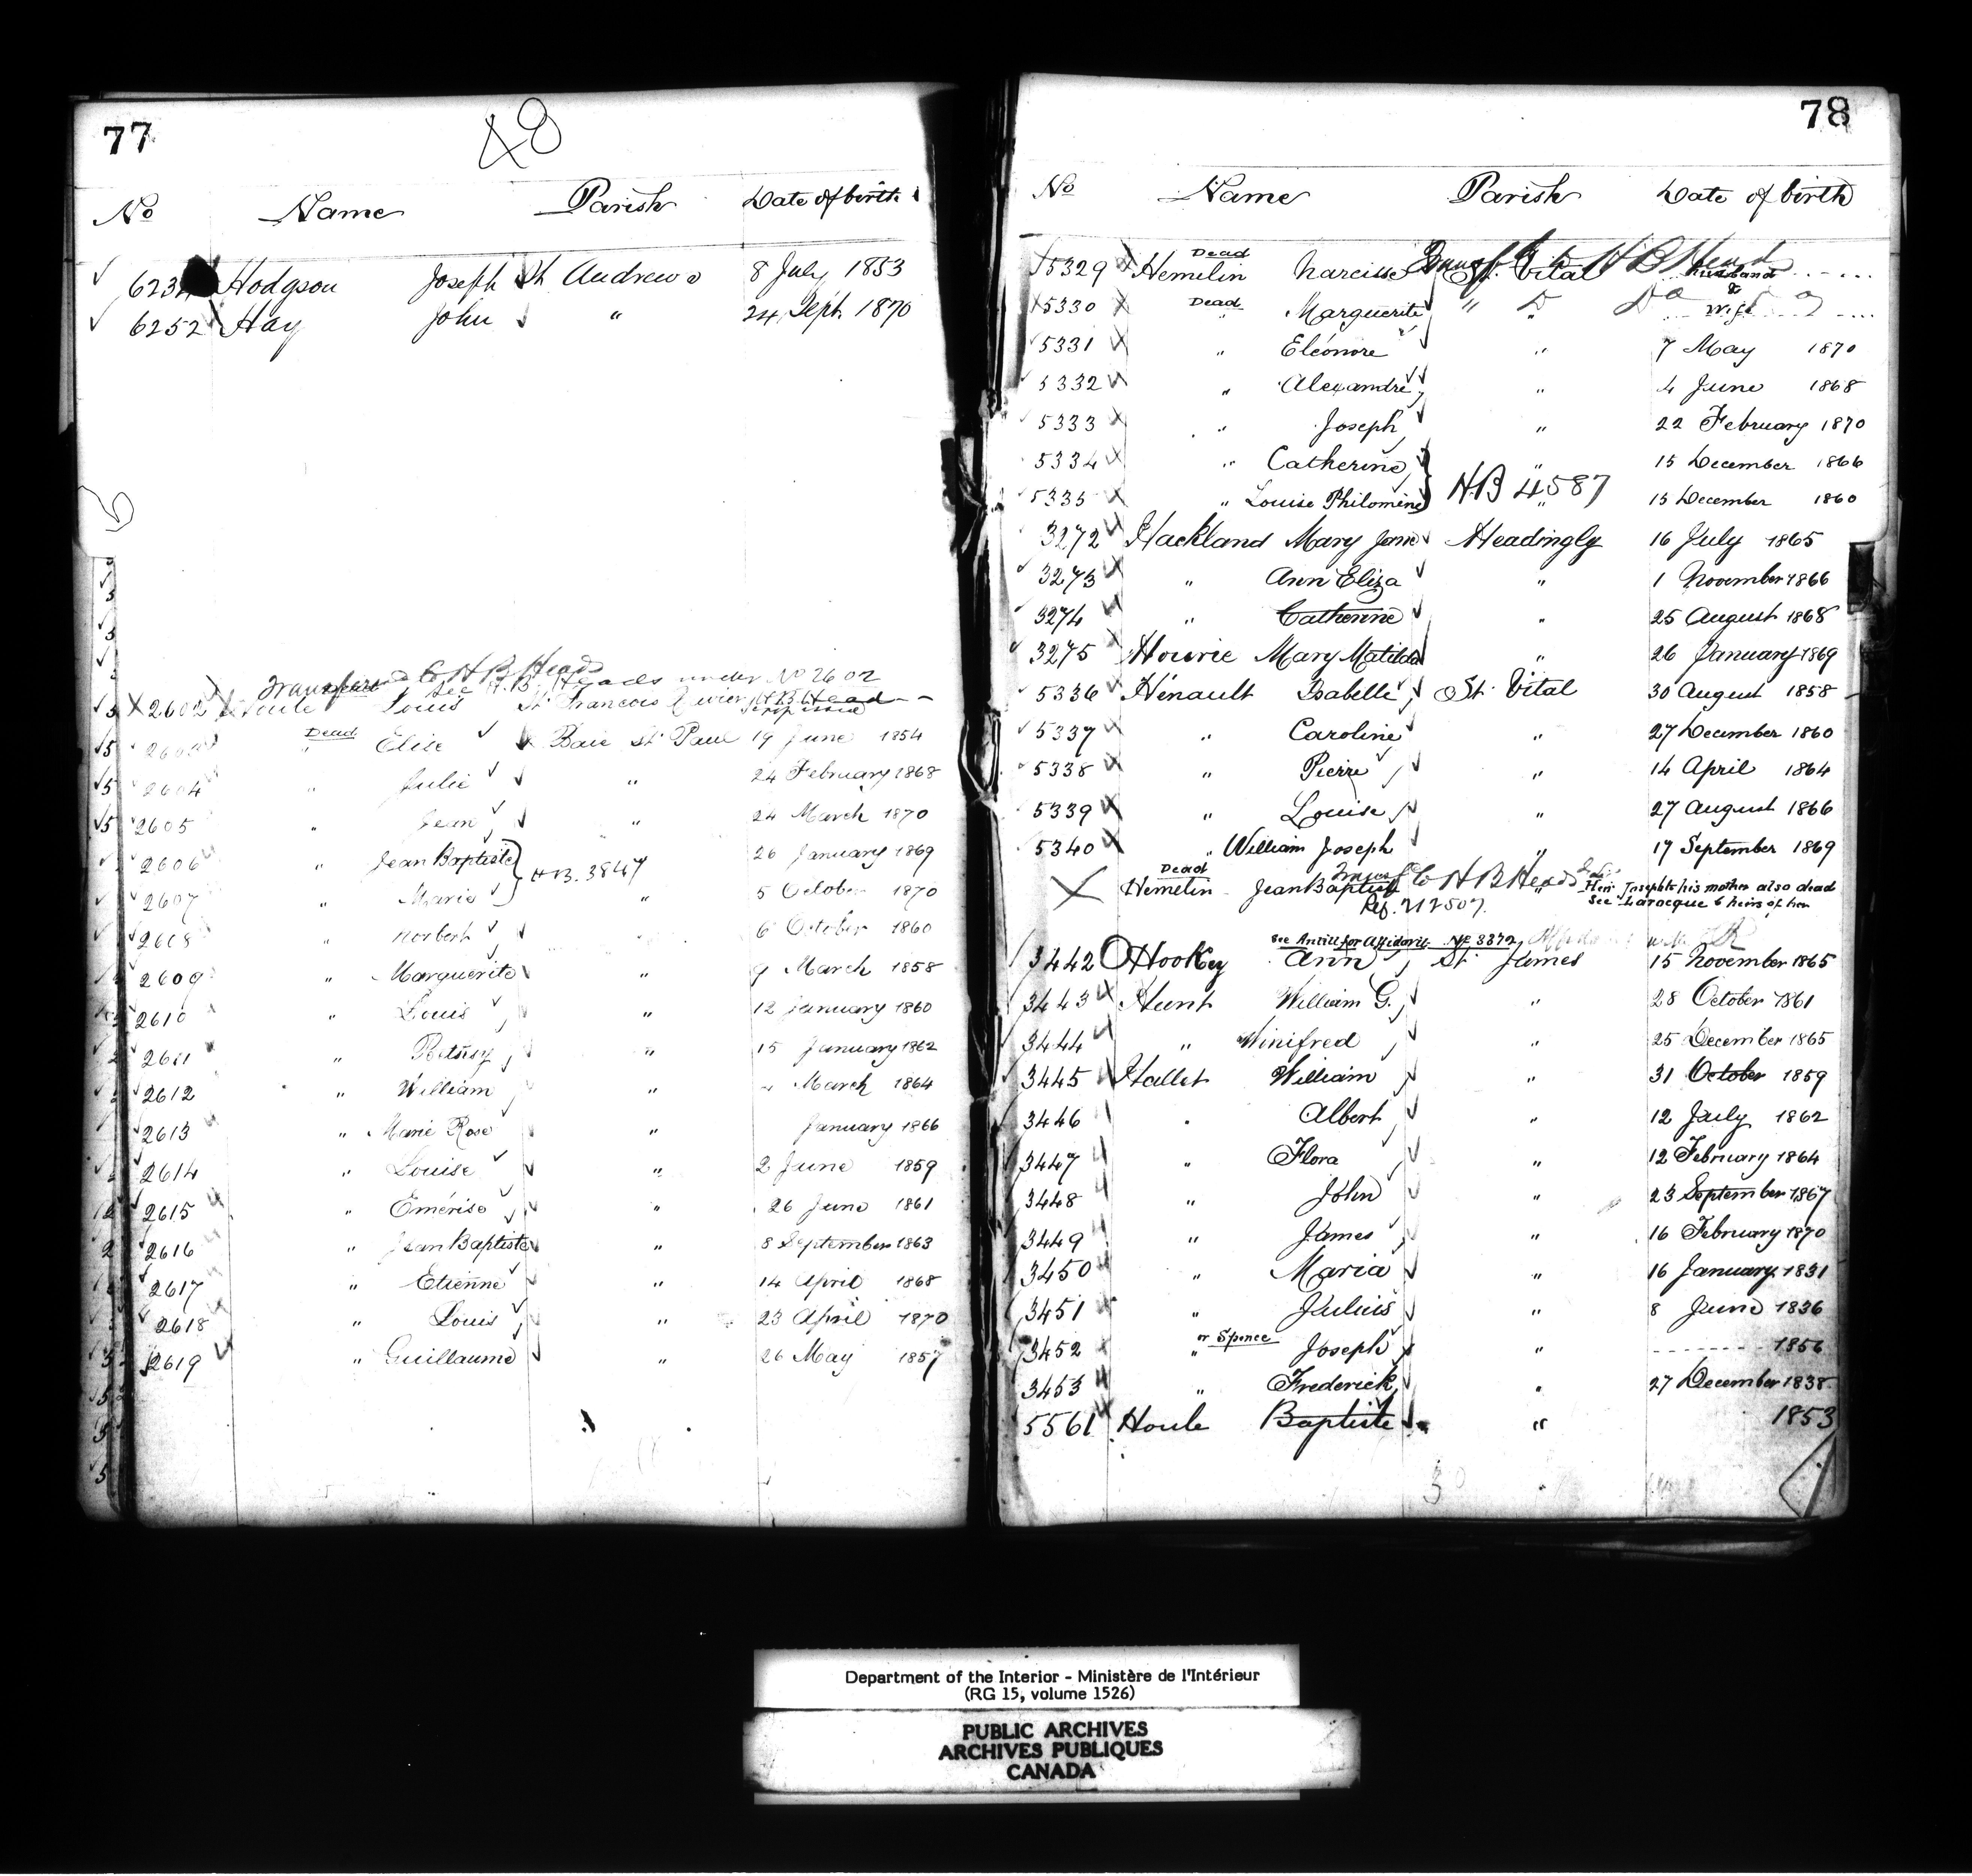 77
48
No Name Parish Date of birth
Hodgson Joseph St Andrews 8 July 1853
6252 Hay John " 24 Sept 1870
Transferred to H B Heads
See H.B. Heads under No 2602
2602 Louis St Francois Xavier H.B. Head
Dead
" Elise Baie St Paul 19 June 1854
2604 " Julie " 24 February 1868
2605 " Jean " 24 March 1870
2606 " Jean Baptiste } H.B. 3847 26 January 1869
2607 " Marie " 5 October 1870
2608 " Norbert " 6 October 1860
2609 " Marguerite " 9 March 1858
2610 " Louis " 12 January 1860
2611 " Betsey " 15 January 1862
2612 " William " March 1864
2613 " Marie Rose " January 1866
2614 " Louise " 2 June 1859
2615 " Emérise " 26 June 1861
2616 " Jean Baptiste " 8 September 1863
2617 " Etienne " 14 April 1868
2618 " Louis " 23 April 1870
2619 " Guillaume " 26 May 1857
78
No Name Parish Date of birth
Dead Transf to H B Heads
5329 Hemelin Narcisse St. Vital husband
&
5330 Dead Marguerite " Do Do wife
5331 " Eléonore " 7 May 1870
5332 " Alexandre " 4 June 1868
5333 " Joseph " 22 February 1870
5334 " Catherine " 15 December 1866
5335 " Louise Philomene } H.B 4587 " 15 December 1860
3272 Hackland Mary Jane Headingly 16 July 1865
3273 " Ann Eliza " 1 November 1866
3274 " Catherine " 25 August 1868
3275 Hourie Mary Matilda " 26 January 1869
5336 Hénault Isabelle St. Vital 30 August 1858
5337 " Caroline " 27 December 1860
5338 " Pierre " 14 April 1864
5339 " Louise " 27 August 1866
5340 " William Joseph " 17 September 1869
Dead Transf to H B Heads
Hemelin Jean Baptiste " Heir Josephte his mother also dead
Ref. 212507. See Larocque 6 heirs of her
See Antill for Affidavit
3442 Hookey Ann St. James 15 November 1865
3443 Hunt William G. " 28 October 1861
3444 " Winifred " 25 December 1865
3445 Hallet William " 31 October 1859
3446 " Albert " 12 July 1862
3447 " Flora " 12 February 1864
3448 " John " 23 September 1867
3449 " James " 16 February 1870
3450 " Maria " 16 January 1831
3451 " Julius " 8 June 1836
or Spence
3452 " Joseph " 1856
3453 " Frederick " 27 December 1838
5561 Houle Baptiste " 1853
30
Department of the Interior - Ministère de l'Intérieur
(RG 15, volume 1526)
PUBLIC ARCHIVES
ARCHIVES PUBLIQUES
CANADA